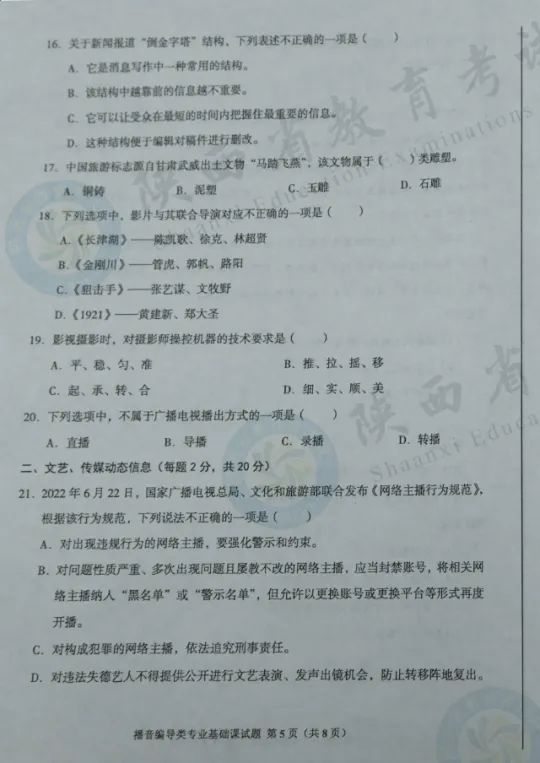 16. 关于新闻报道“倒金字塔”结构，下列表述不正确的一项是（　　）
A. 它是消息写作中一种常用的结构。
B. 该结构中越靠前的信息越不重要。
C. 它可以让受众在最短的时间内把握住最重要的信息。
D. 这种结构便于编辑对稿件进行删改。
17. 中国旅游标志源自甘肃武威出土文物“马踏飞燕”，该文物属于（　　）类雕塑。
A. 铜铸　B. 泥塑　C. 玉雕　D. 石雕
18. 下列选项中，影片与其联合导演对应不正确的一项是（　　）
A.《长津湖》——陈凯歌、徐克、林超贤
B.《金刚川》——管虎、郭帆、路阳
C.《狙击手》——张艺谋、文牧野
D.《1921》——黄建新、郑大圣
19. 影视摄影时，对摄影师操控机器的技术要求是（　　）
A. 平、稳、匀、准　B. 推、拉、摇、移
C. 起、承、转、合　D. 细、实、顺、美
20. 下列选项中，不属于广播电视播出方式的一项是（　　）
A. 直播　B. 导播　C. 录播　D. 转播
二、文艺、传媒动态信息（每题2分，共20分）
21. 2022年6月22日，国家广播电视总局、文化和旅游部联合发布《网络主播行为规范》，
根据该行为规范，下列说法不正确的一项是（　　）
A. 对出现违规行为的网络主播，要强化警示和约束。
B. 对问题性质严重、多次出现问题且屡教不改的网络主播，应当封禁账号，将相关网
络主播纳入“黑名单”或“警示名单”，但允许以更换账号或更换平台等形式再度
开播。
C. 对构成犯罪的网络主播，依法追究刑事责任。
D. 对违法失德艺人不得提供公开进行文艺表演、发声出镜机会，防止转移阵地复出。
播音编导类专业基础课试题 第5页（共8页）
陕西省教育考试
Shaanxi Education Examinations
陕西省
Shaanxi Educa